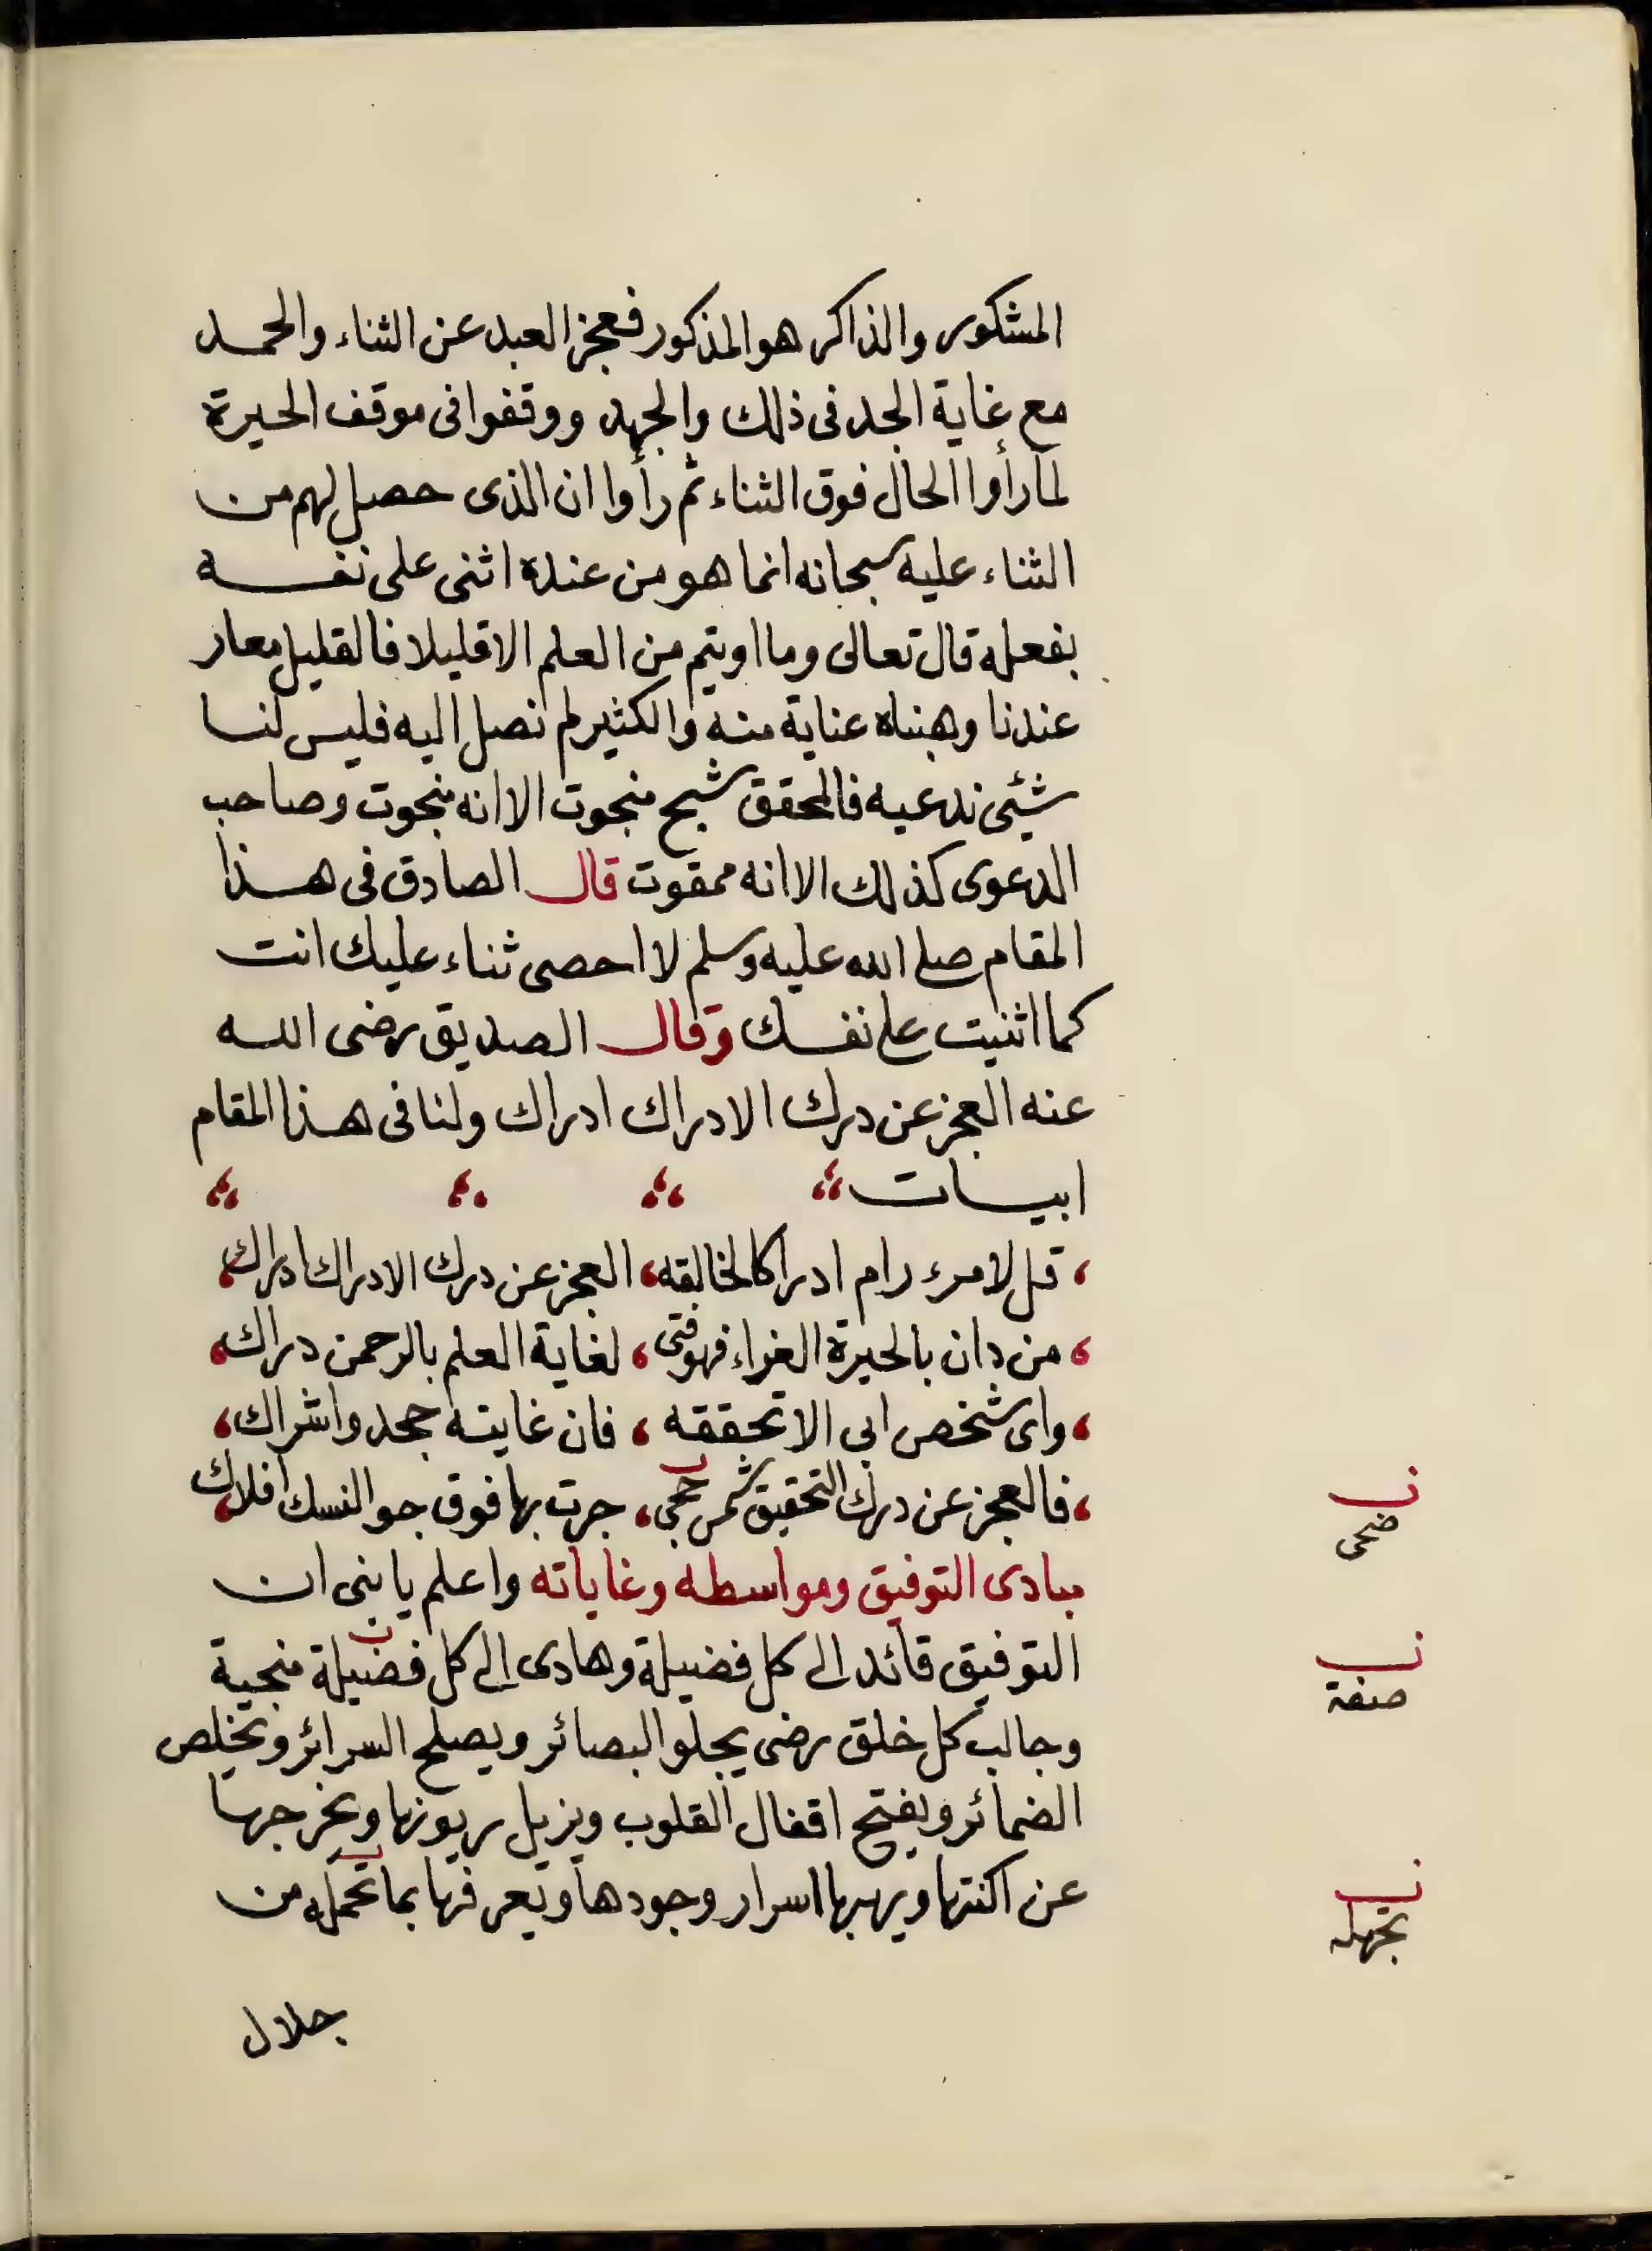 المشكور والذاكر هو المذكور فعجز العبد عن الثناء والحمد
مع غاية الجد فى ذلك والجهد ووقفوا فى موقف الحيرة
لما رأوا الحال فوق الثناء ثم رأوا ان الذى حصل لهم من
الثناء عليه سبحانه انما هو من عنده اثنى على نفسه
بفعله قال تعالى وما اوتيتم من العلم الا قليلا فالقليل معار
عندنا وهبناه عناية منه والكثير لم نصل اليه فليس لنا
شيئى ندعيه فالمحقق شبح منجوت الا انه منجوت وصاحب
الدعوى كذلك الا انه ممقوت قال الصادق فى هذا
المقام صلى الله عليه وسلم لا احصى ثناء عليك انت
كما اثنيت على نفسك وقال الصديق رضى الله
عنه العجز عن درك الادراك ادراك ولنا فى هذا المقام
ابيات
قل لامرء رام ادراكا لخالقه، العجز عن درك الادراك ادراك،
، من دان بالحيرة الغراء فهو فتى، لغاية العلم بالرحمن دراك،
، واى شخص ابى الا تحققه، فان غايته جحد واشراك،
، فالعجز عن درك التحقيق شمس حجى، جرت بها فوق جو النسك افلاك،
مبادى التوفيق ومواسطه وغاياته واعلم يا بنى ان
التوفيق قائد الى كل فضيلة وهادى الى كل فضيلة منجية
وجالب كل خلق رضى يجلو البصائر ويصلح السرائر وتخلص
الضمائر ويفتح اقفال القلوب ويزيل ريونها ويخرجها
عن اكنتها ويهبها اسرار وجودها ويعرفها بما تحمله من
جلال
ن
ضحى
ن
صفة
ن
تجهله